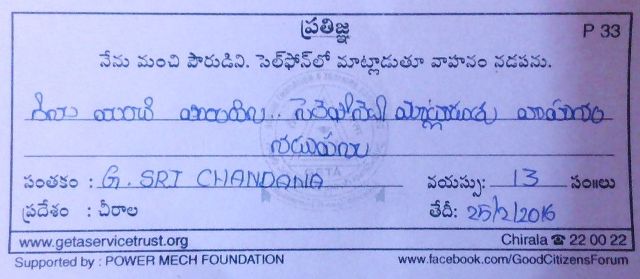 ప్రతిజ్ఞ
P 33
నేను మంచి పౌరుడిని. సెల్‌ఫోన్‌లో మాట్లాడుతూ వాహనం నడపను.
నేను మంచి పౌరుడిని.. సెల్‌ఫోన్‌లో మాట్లాడుతూ వాహనం
నడుపను
సంతకం : G. SRI CHANDANA వయస్సు: 13 సం॥లు
ప్రదేశం : చీరాల తేదీ: 25/2/2016
www.getaservicetrust.org Chirala ☎ 22 00 22
Supported by : POWER MECH FOUNDATION www.facebook.com/GoodCitizensForum